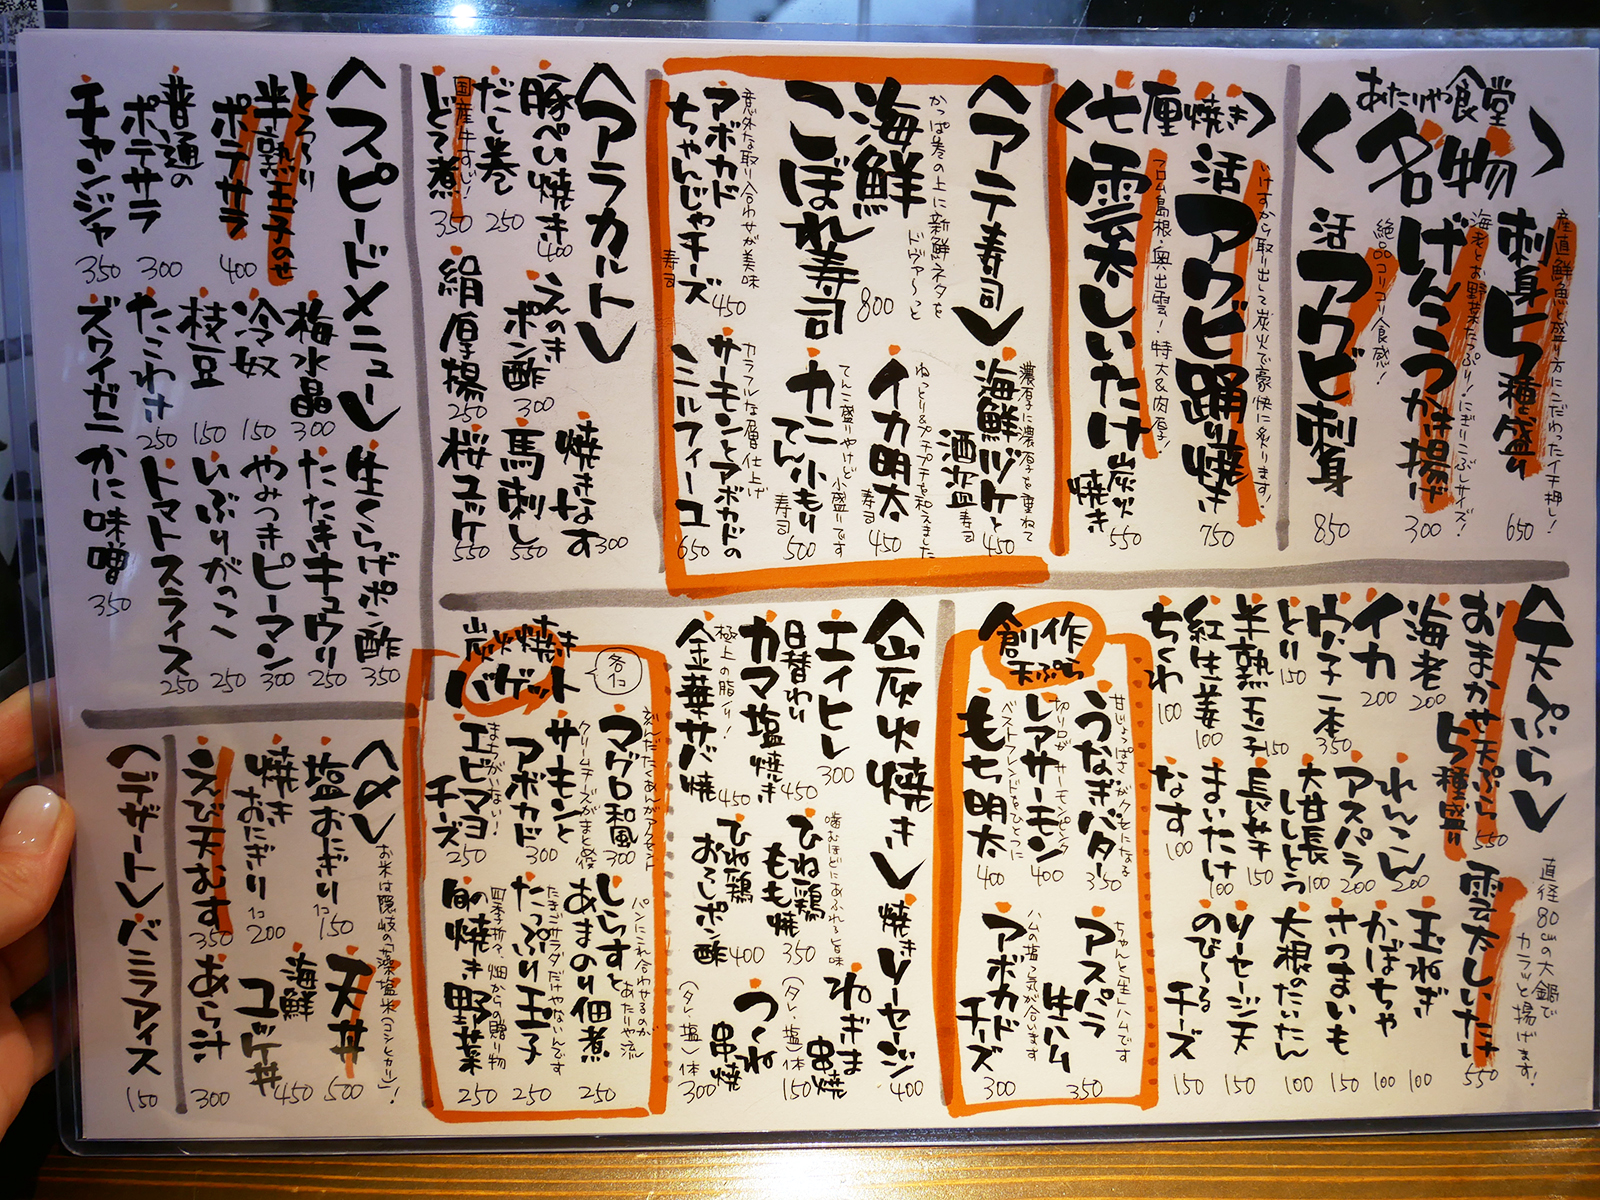 あたりや食堂
〈名物〉
産直鮮魚と盛り方にこだわったイチ押し!
刺身5種盛り
650
海老とお野菜たっぷり!にぎりこぶしサイズ!
げんこつかき揚げ
300
絶品コリコリ食感!
活アワビ刺身
850
〈七厘焼き〉
いけすから取り出して炭火で豪快に炙ります!
活アワビ踊り焼き
750
フロム島根・奥出雲!特大&肉厚!
雲太しいたけ炭火焼き
550
〈アテ寿司〉
かっぱ巻の上に新鮮ネタをドヴァ〜っと
海鮮こぼれ寿司
800
意外な取り合わせが美味
アボカドちゃんじゃチーズ寿司
450
濃厚に濃厚を重ねて
海鮮ヅケと酒盗寿司
450
ねっとり&プチプチを和えました
イカ明太寿司
450
てんこ盛りやけど小盛りです
カニ小もりてん寿司
500
カラフルな層仕上げ
サーモンとアボカドのミルフィーユ
650
〈アラカルト〉
豚ぺい焼き
400
だし巻
250
国産牛すじ!
どて煮
350
えのきポン酢
300
絹厚揚
250
焼きなす
300
馬刺し
550
桜ユッケ
550
〈スピードメニュー〉
とろ〜り半熟玉子のせポテサラ
400
普通のポテサラ
300
チャンジャ
350
梅水晶
300
冷奴
150
枝豆
150
たこわさ
250
ズワイガニかに味噌
350
生くらげポン酢
350
たたきキュウリ
250
やみつきピーマン
300
いぶりがっこ
250
トマトスライス
250
〈天ぷら〉
おまかせ天ぷら5種盛り
550
海老
200
イカ
200
ウニ一本
350
とり
150
半熟玉子
150
紅生姜
100
ちくわ
100
れんこん
200
アスパラ
200
大甘長ししとう
100
長芋
150
まいたけ
100
なす
100
直径80cmの大鍋でカラッと揚げます!
雲太しいたけ
550
玉ねぎ
100
かぼちゃ
100
さつまいも
150
大根のたいたん
100
ソーセージ天
150
のび〜るチーズ
150
創作天ぷら
甘じょっぱさがクセになる
うなぎバター
350
切り口がサーモンピンク
レアサーモン
400
ベストフレンドをひとつに
もち明太
400
ちゃんと生ハムです
アスパラ生ハム
350
ハムの塩っ気が合います
アボカドチーズ
300
〈炭火焼き〉
エイヒレ
300
日替わりカマ塩焼き
450
極上の脂ノリ!
金華サバ焼
450
噛むほどにあふれる旨味
ひね鶏もも焼
350
ひね鶏おろしポン酢
400
焼きソーセージ
400
ねぎま串焼
(タレ・塩)一本
150
つくね串焼
(タレ・塩)一本
300
炭火焼きバゲット
各1コ
刻んだたくあんがアクセント
マグロ和風
300
クリームチーズがまとめ役
サーモンとアボカド
300
まちがいない!
エビマヨチーズ
250
パンにこれ合わせるのがあたりや流
しらすとあまのり佃煮
250
たまごサラダだけやないんです
たっぷり玉子
250
四季折々、畑からの贈り物
旬の焼き野菜
250
〈〆〉
お米は隠岐の「藻塩米(コシヒカリ)」!
塩おにぎり
1コ150
焼きおにぎり
1コ200
えび天むす
350
天丼
500
海鮮ユッケ丼
450
あら汁
300
〈デザート〉
バニラアイス
150